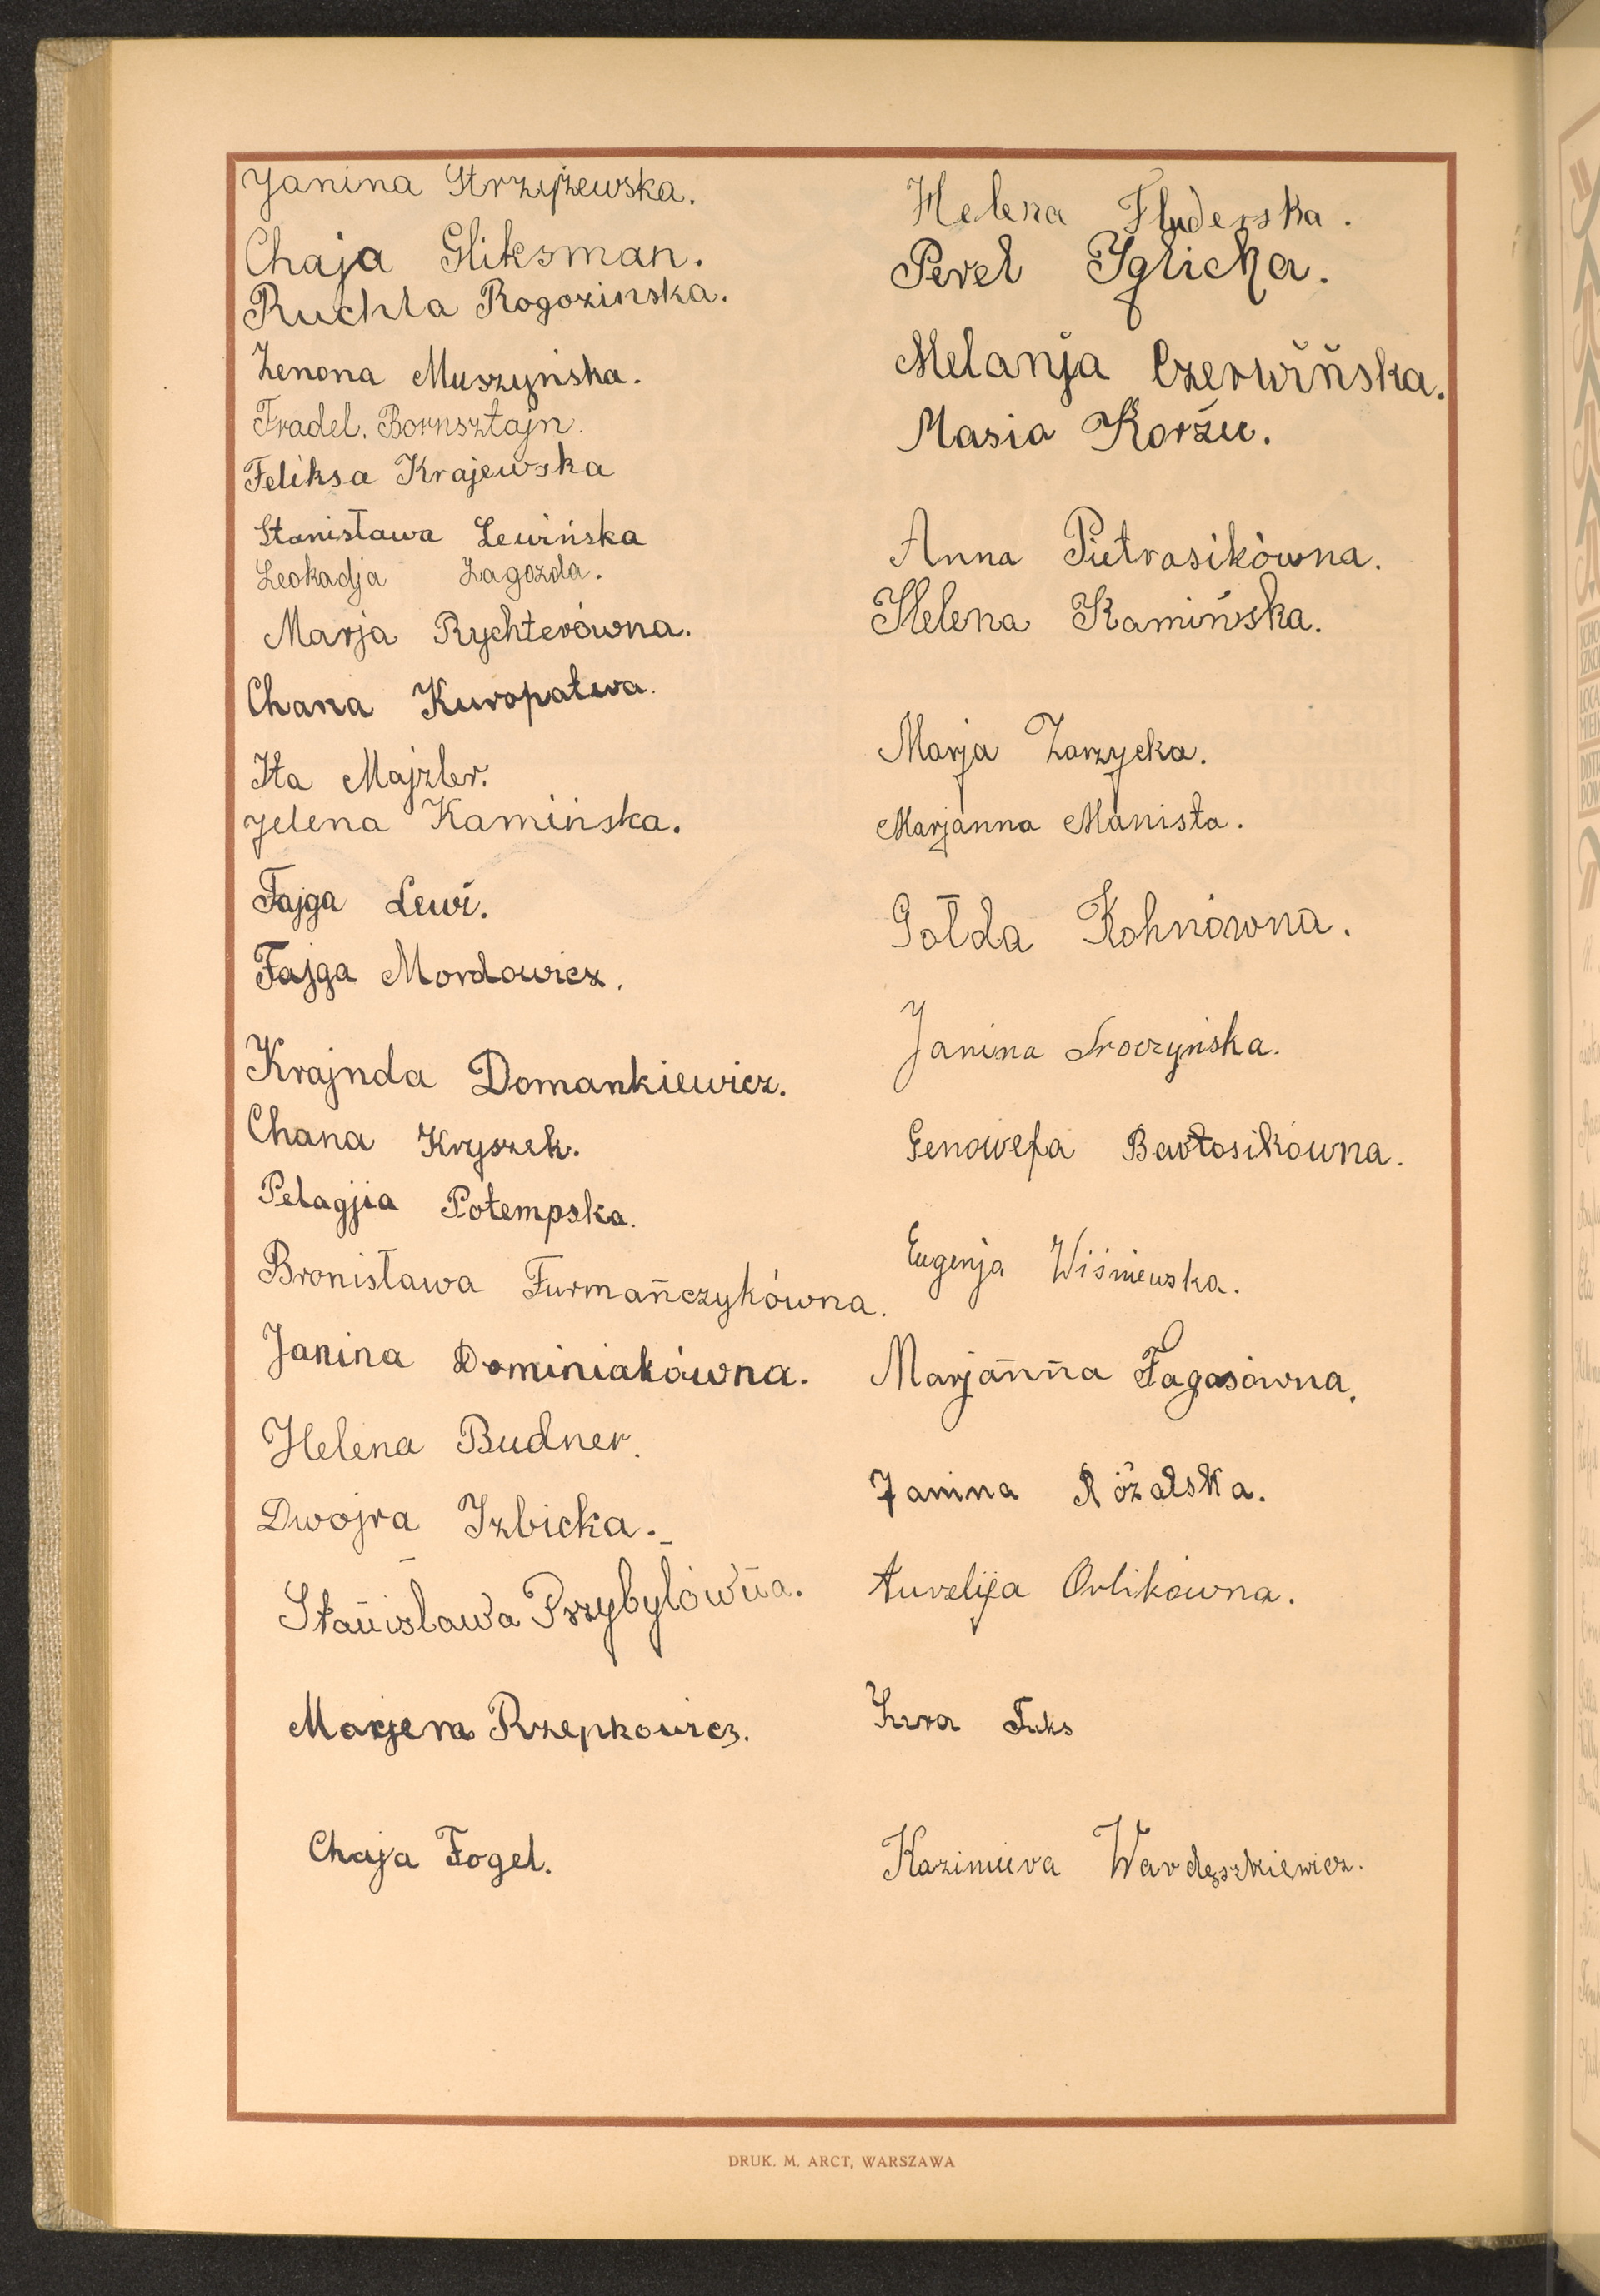 Janina Strzyżewska.
Chaja Gliksman.
Ruchla Rogozinska.
Zenona Muszyńska.
Fradel. Bornsztajn.
Feliksa Krajewska
Stanisława Lewińska
Leokadja Zagozda.
Marja Rychterówna.
Chana Kuropatwa.
Ita Majzler.
Jelena Kamińska.
Fajga Lewi.
Fajga Mordowicz.
Krajnda Domankiewicz.
Chana Kryszek.
Pelagjia Potempska.
Bronisława Furmańczykówna.
Janina Dominiakówna.
Helena Budner.
Dwojra Izbicka.
Stanisława Przybylówna.
Marjem Rzepkowicz.
Chaja Fogel.
Helena Fluderska.
Perel Iglicka.
Melanja Czerwińska.
Masia Korżu.
Anna Pietrasikówna.
Helena Kamińska.
Marja Zarzycka.
Marjanna Manista.
Gołda Kohnówna.
Janina Sroczyńska.
Genowefa Bartosikówna.
Eugenja Wiśniewska.
Marjanna Fagasówna.
Janina Różalska.
Aurelija Orlikówna.
Fuks
Kazimiera Wardęszkiewicz.
DRUK. M. ARCT, WARSZAWA